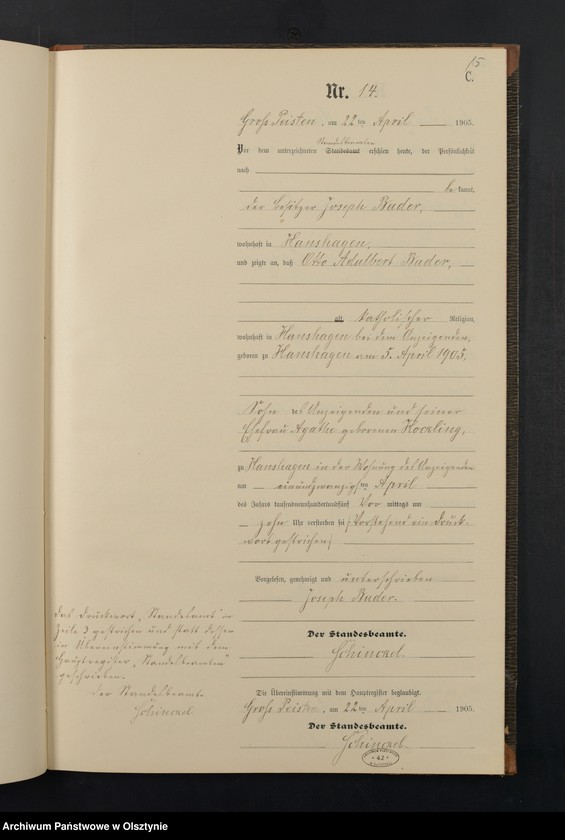 15
C.
Nr. 14.
Gross Peisten, am 22ten April 1905.
Standesbeamten
Vor dem unterzeichneten Standesamt erschien heute, der Persönlichkeit
nach
bekannt,
der Besitzer Joseph Bader,
wohnhaft in Hanshagen,
und zeigte an, daß Otto Adalbert Bader,
alt katholischer Religion,
wohnhaft in Hanshagen bei dem Anzeigenden,
geboren zu Hanshagen am 5. April 1905,
Sohn des Anzeigenden und seiner
Ehefrau Agathe geborenen
zu Hanshagen in der Wohnung des Anzeigenden
am einundzwanzigsten April
des Jahres tausendneunhundertundfünf Vor mittags um
zehn Uhr verstorben sei (Vorstehend ein Druck-
wort gestrichen)
Vorgelesen, genehmigt und unterschrieben
Joseph Bader.
Der Standesbeamte.
Schinckel
Das Druckwort „Standesamt" in
Zeile 3 gestrichen und statt dessen
in Übereinstimmung mit dem
Hauptregister „Standesbeamten"
geschrieben.
Der Standesbeamte
Schinckel
Die Übereinstimmung mit dem Hauptregister beglaubigt.
Gross Peisten, am 22ten April 1905.
Der Standesbeamte.
Schinckel
42
Archiwum Państwowe w Olsztynie